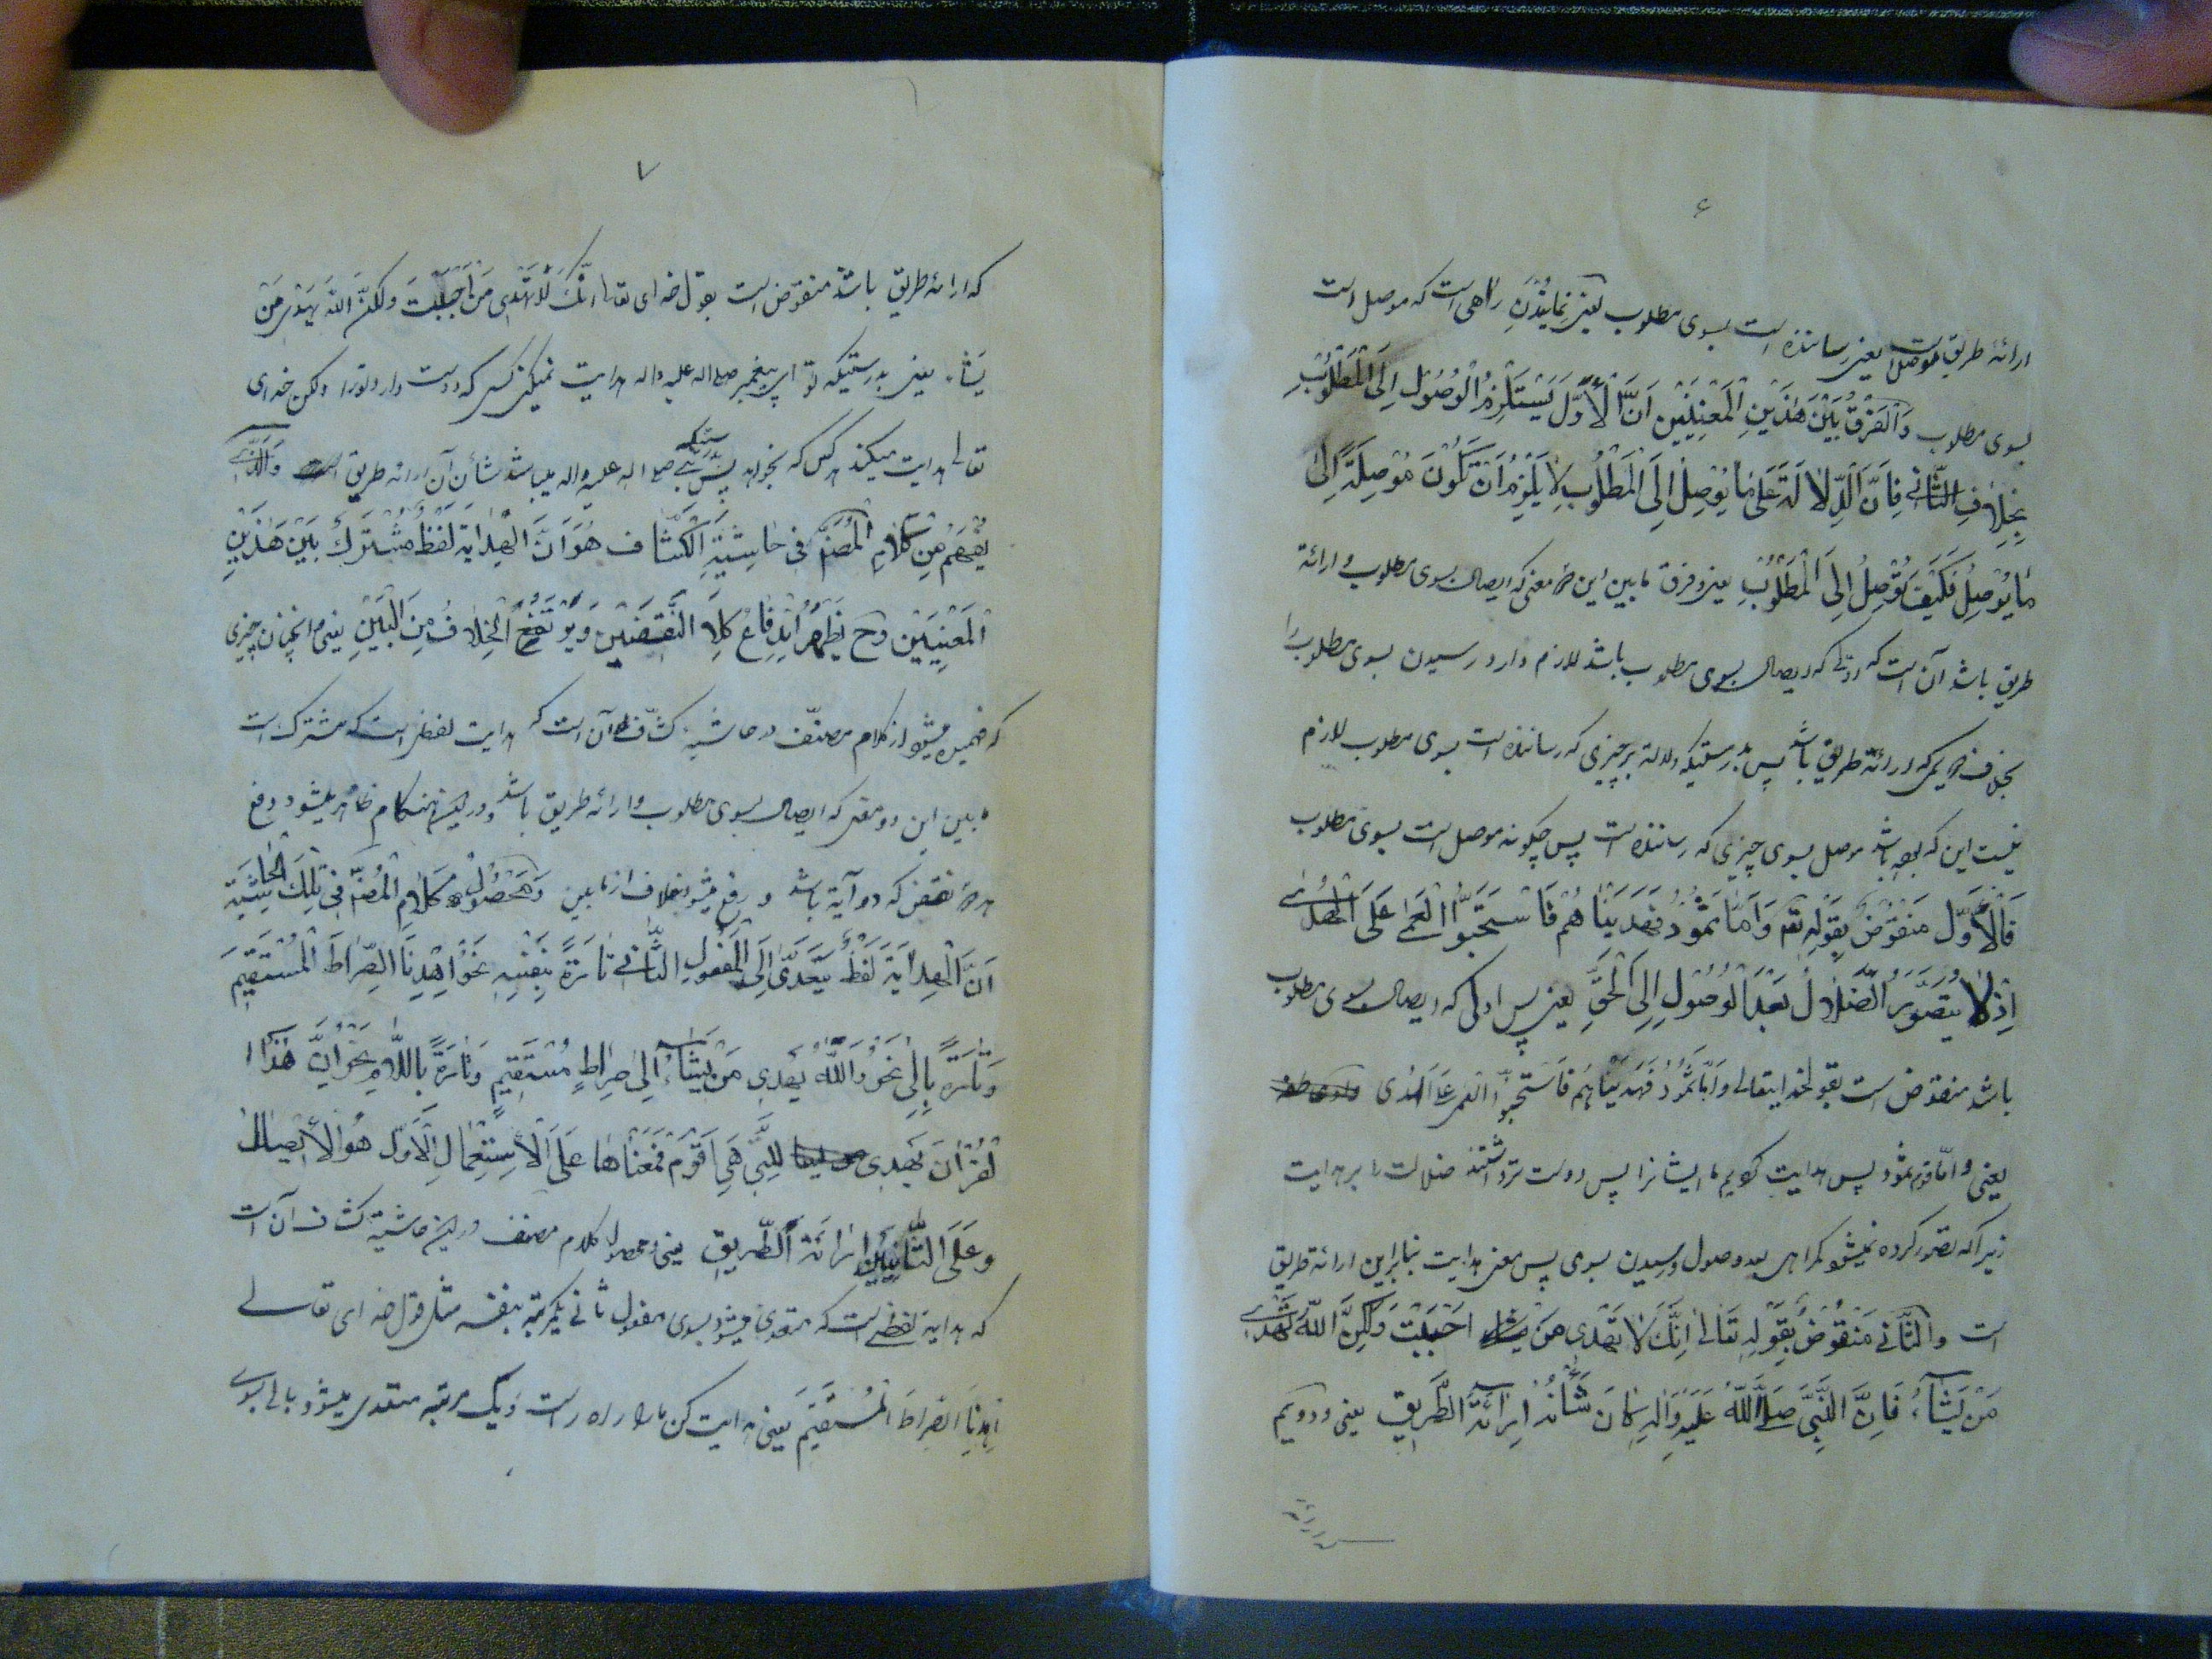 ۶
ارائهٔ طریق موصل است یعنی رساننده است بسوی مطلوب یعنی نمایندن راهی است که موصل است
بسوی مطلوب وَالْفَرْقُ بَیْنَ هٰذَیْنِ الْمَعْنِیَیْنِ اَنَّ الْأَوَّلَ یَسْتَلْزِمُ الْوُصُولَ اِلَی الْمَطْلُوبِ
بِخِلافِ الثّانی فَاِنَّ الدِّلالَةَ عَلی مٰا یُوْصِلُ اِلَی الْمَطْلُوبِ لا یَلْزِمُ اَنْ تَکُونَ مُوْصِلَةً اِلیٰ
مٰا یُوْصِلُ فَکَیْفَ تُوْصِلُ اِلَی الْمَطْلُوبِ یعنی و فرق مابین این دو معنی که ایصال بسوی مطلوب و ارائهٔ
طریق باشد آن است که اولی که ایصال بسوی مطلوب باشد لازم دارد رسیدن بسوی مطلوب را
بخلاف دویمی که ارائهٔ طریق باشد پس بدرستیکه دلالة بر چیزی که رساننده است بسوی مطلوب لازم
نیست این که بوده باشد موصل بسوی چیزی که رساننده است پس چگونه موصل است بسوی مطلوب
فَالْأَوَّلُ مَنْقُوضٌ بِقَوْلِهِ تعٰ وَاَمّا ثَمُودُ فَهَدَیْنٰاهُمْ فَاسْتَحَبُّوا الْعَمیٰ عَلَی الْهُدیٰ
اِذْ لا یُتَصَوَّرُ الضَّلالُ بَعْدَ الْوُصُولِ اِلَی الْحَقِّ یعنی پس اولی که ایصال بسوی مطلوب
باشد منقوض است بقول خدایتعالی وَاَمّا ثَمُودُ فَهَدَیْنٰاهُمْ فَاسْتَحَبُّوا الْعَمی عَلَی الْهُدی
یعنی و امّا قوم ثمود پس هدایت کردیم ما ایشانرا پس دوست تر داشتند ضلالت را بر هدایت
زیرا که تصور کرده نمیشود گمراهی بعد وصول و رسیدن بسوی پس معنی هدایت بنابراین ارائهٔ طریق
است والثّانی مَنْقُوضٌ بِقَوْلِهِ تَعٰالیٰ اِنَّکَ لا تَهْدِی مَنْ اَحْبَبْتَ وَلٰکِنَّ اللّٰهَ یَهْدی
مَنْ یَشٰاءُ فَاِنَّ النَّبِیَّ صَلَّی اللّٰهُ عَلَیْهِ وَاٰلِهِ کٰانَ شَأْنُهُ اِرٰائَةُ الطَّرِیقِ یعنی و دویم
۷
که ارائهٔ طریق باشد منقوض است بقول خدای تعالی اِنَّکَ لا تَهْدِی مَنْ اَحْبَبْتَ وَلکِنَّ اللّهَ یَهْدِی مَنْ
یَشٰاءُ یعنی بدرستیکه تو ای پیغمبر صلی اله علیه و اله هدایت نمیکنی کسی که دوست دارد تو را ولکن خدای
تعالی هدایت میکند هر کس که بخواهد پس بدرستیکه نبی صلی اله علیه و اله میباشد شأن آن ارائه طریق وَالَّذی
یُفْهَمُ مِنْ کَلٰامِ الْمُصَنِّ فی حٰاشِیَةِ الْکَشّٰاف هُوَ اَنَّ الْهِدٰایَةَ لَفْظٌ مُشْتَرَکٌ بَیْنَ هٰذَیْنِ
الْمَعْنِیَیْنِ وح یَظْهَرُ اِنْدِفٰاعُ کِلَا النَّقْضَیْنِ وَیَرْتَفِعُ الْخِلافُ مِنَ الْبَیْنِ یعنی و انچنان چیزی
که فهمیده میشود از کلام مصنّف در حاشیه کشّاف آن است که هدایت لفظی است که مشترک است
مابین این دو معنی که ایصال بسوی مطلوب و ارائهٔ طریق باشد و در این هنگام ظاهر میشود دفع
هر دو نقض که دو آیة باشد و رفع میشود خلاف از مابین وَمَحْصُولُ کَلٰامِ الْمُصَنِّ فی تِلْکَ الْحٰاشِیَةِ
اَنَّ الْهِدٰایَةَ لَفْظٌ یَتَعَدّیٰ اِلَی الْمَفْعُولِ الثّٰانی تٰارَةً بِنَفْسِهِ نَحْوُ اِهْدِنَا الصِّرٰاطَ الْمُسْتَقِیمَ
وَتٰارَةً بِاِلیٰ نَحْوُ وَاللّٰهُ یَهْدِی مَنْ یَشٰاءُ اِلیٰ صِرٰاطٍ مُسْتَقِیمٍ وَتٰارَةً بِاللّٰامِ نَحْوُ اِنَّ هٰذَا ا
لْقُرْآنَ یَهْدِی لِلَّتی هِیَ اَقْوَمُ فَمَعْنٰاهٰا عَلَی الْأِسْتِعْمٰالِ الْأَوَّلِ هُوَ الْأیصٰال
وَعَلَی الثّٰانِیَیْنِ اِرٰائَةُ الطَّرِیقِ یعنی و محصول کلام مصنف در این حاشیهٔ کشاف آن است
که هدایة لفظی است که متعدی میشود بسوی مفعول ثانی یکمرتبه بنفسه مثل قول خدای تعالی
اِهْدِنَا الصِّراطَ الْمُسْتَقِیمَ یعنی هدایت کن ما را راه راست و یک مرتبه متعدی میشود بالی بسوی